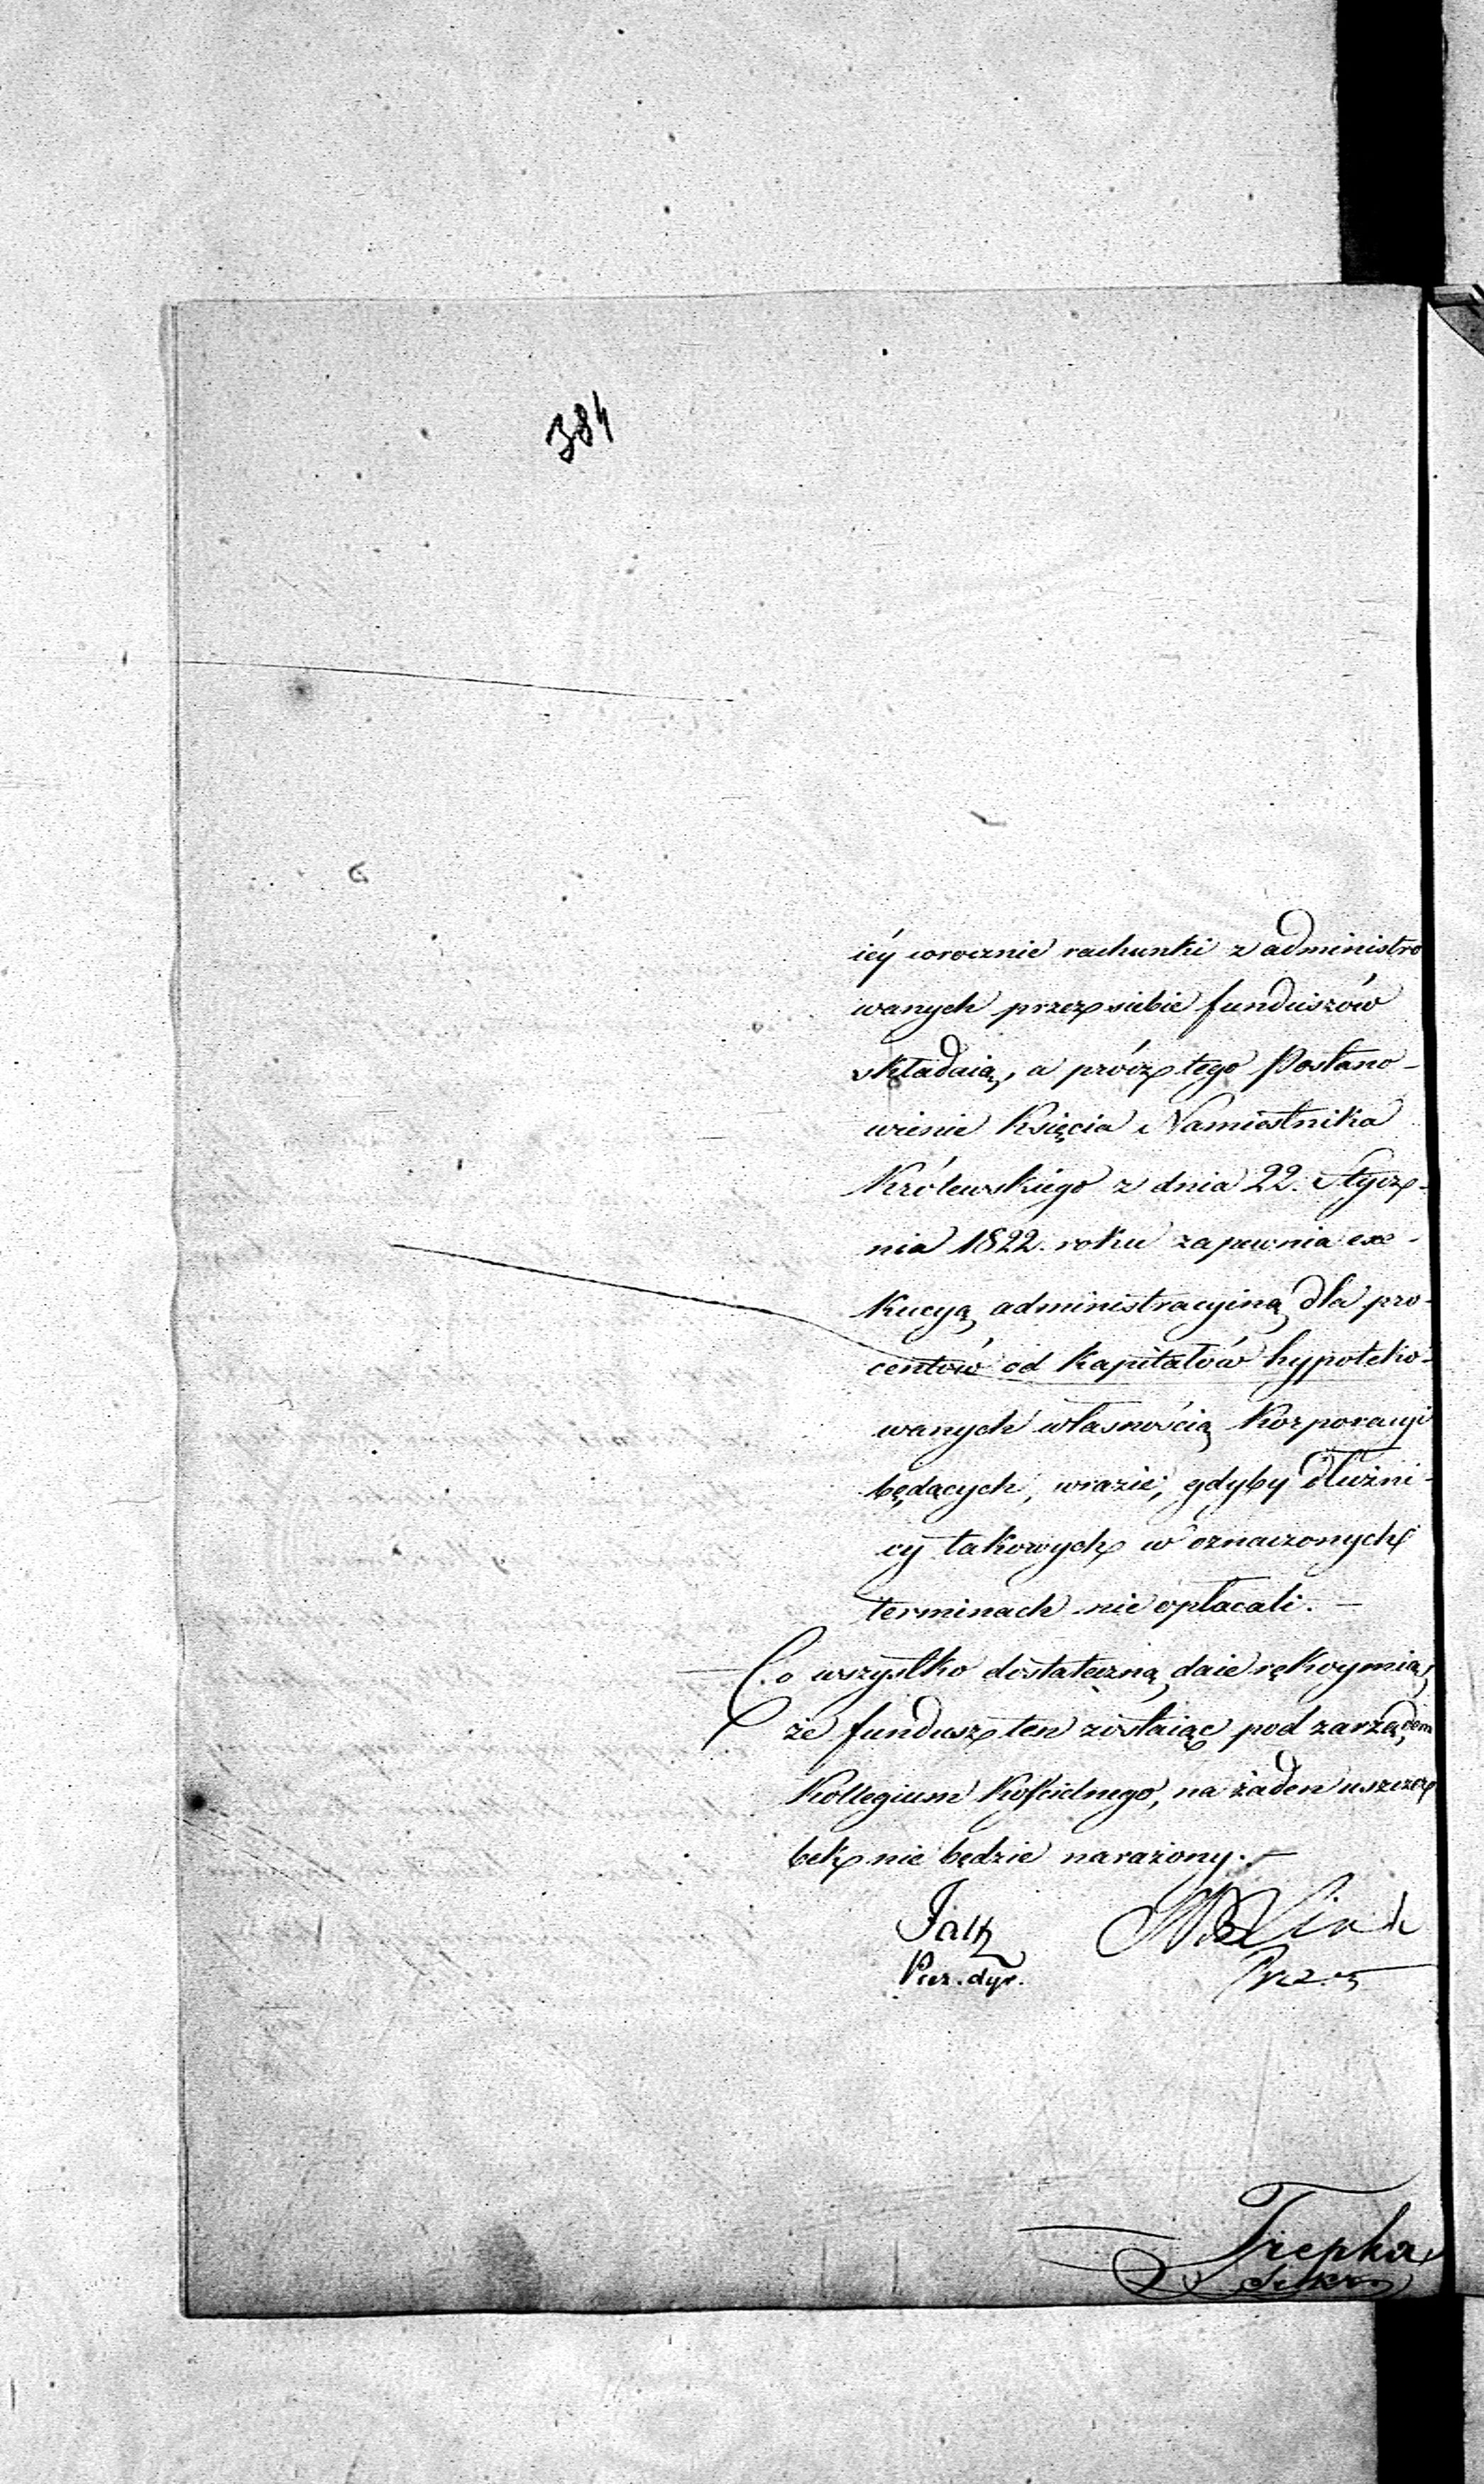 384
iéy corocznie rachunki z administro
wanych przez siebie funduszów
składaią, a prócz tego Postano-
wienie Księcia Namiestnika
Królewskiego z dnia 22. Stycz-
nia 1822. roku zapewnia exe-
kucyą administracyiną dla pro-
centów od kapitałów hypoteko-
wanych własnością Korporacyi
będących, wrazie, gdyby dłużni-
cy takowych w oznaczonych
terminach nie opłacali. —
Co wszystko dostateczną daie rękoymią,
że fundusz ten zostaiąc pod zarządem
Kollegium Kościelnego, na żaden uszczer
bek nie będzie narażony. —
Falz
Prez.
Trepka
Sekr.